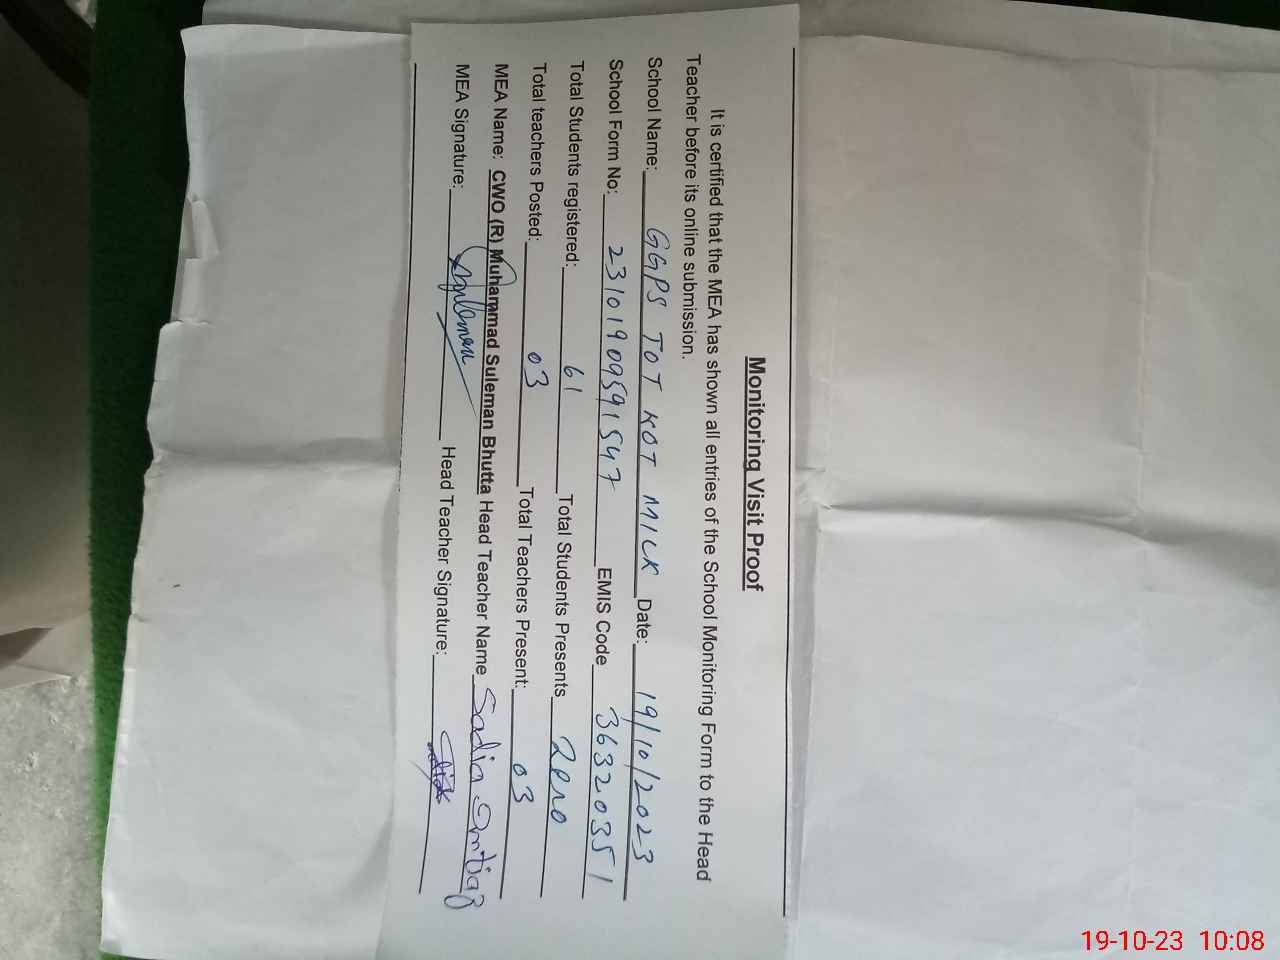 Monitoring Visit Proof
It is certified that the MEA has shown all entries of the School Monitoring Form to the Head
Teacher before its online submission.
School Name: GGPS TOT KOT MILK Date: 19/10/2023
School Form No: 23101909591547 EMIS Code 36320351
Total Students registered: 61 Total Students Presents Zero
Total teachers Posted: 03 Total Teachers Present: 03
MEA Name: CWO (R) Muhammad Suleman Bhutta Head Teacher Name Sadia Imtiaz
MEA Signature: Suleman Head Teacher Signature:
19-10-23 10:08